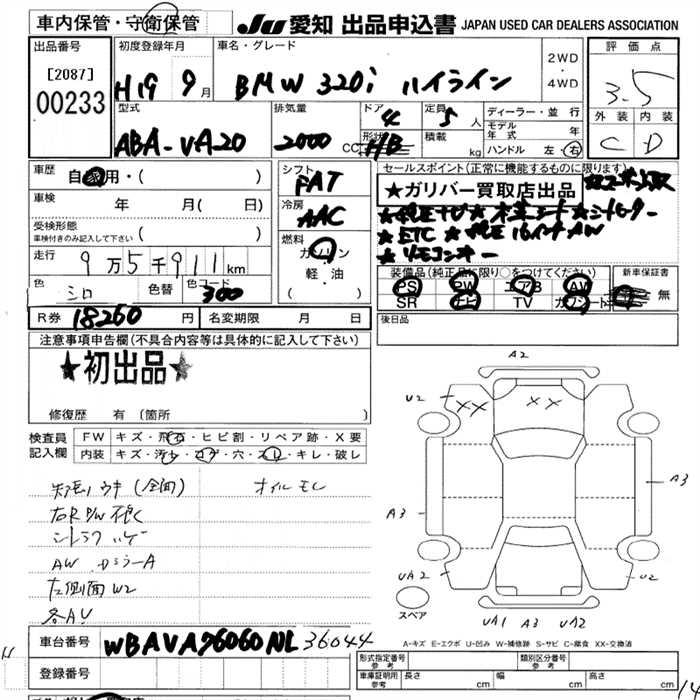 車内保管・守衛保管
JU 愛知 出品申込書 JAPAN USED CAR DEALERS ASSOCIATION
出品番号 初度登録年月 車名・グレード 2WD・4WD 評価点
[2087]
00233 H19 9月 BMW 320i ハイライン 3.5
型式 排気量 ドア 4 定員 5人 ディーラー・並行 外装 内装
ABA-VA20 2000 CC 形状 H/B 積載 kg モデル年式 年 C D
ハンドル 左・右
車歴 自家用・( ) シフト FAT セールスポイント(正常に機能するものに限ります)
★ガリバー買取店出品
車検 年 月( 日) 冷房 AAC
受検形態
車検付きのみ記入して下さい ( )
★ETC
走行 9万5千911km 燃料 ガソリン・軽油 ( )
装備品(純正品に限り○をつけてください) 新車保証書
色 シロ 色替 色コード 300
PS PW エアB AW
SR ナビ TV カワシート 無
R券 18260円 名変期限 月 日 後日品
注意事項申告欄(不具合内容等は具体的に記入して下さい)
★初出品★
修復歴 有(箇所
A2
U2 XX XX
検査員記入欄 FW キズ・飛石・ヒビ割・リペア跡・X要
内装 キズ・汚れ・コゲ・穴・スレ・キレ・破レ
オイルモレ
A3 A3
AW
左側面 W2
各AU
UA2 U2
スペア
UA1 A3 UA2
車台番号 WBAVA76060NL36044
A-キズ E-エクボ U-凹み W-補修跡 S-サビ C-腐食 XX-交換済
登録番号
形式指定番号 参考 類別区分番号 参考
車庫証明用 参考 長さ cm 幅 cm 高さ cm